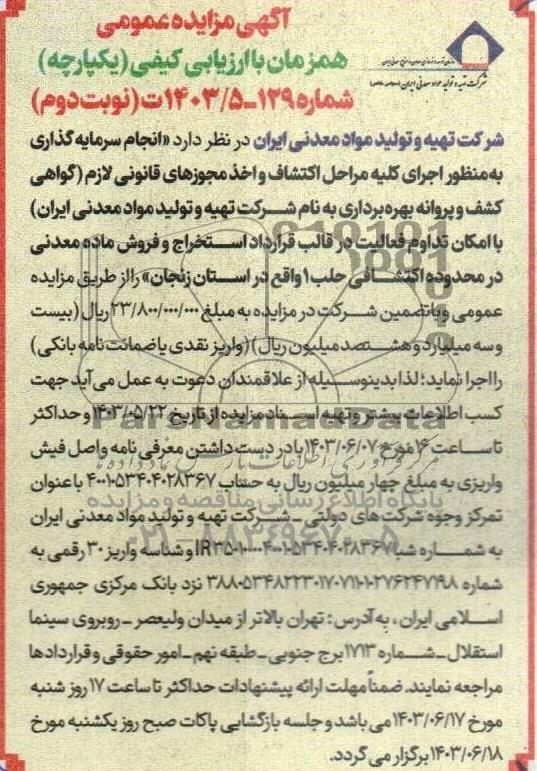 آگهی مزایده عمومی
همزمان با ارزیابی کیفی (یکپارچه)
شماره ۱۲۹-۱۴۰۳/۵ت (نوبت دوم)
شرکت تهیه و تولید مواد معدنی ایران
شرکت تهیه و تولید مواد معدنی ایران در نظر دارد «انجام سرمایه گذاری
به منظور اجرای کلیه مراحل اکتشاف و اخذ مجوزهای قانونی لازم (گواهی
کشف و پروانه بهره برداری به نام شرکت تهیه و تولید مواد معدنی ایران)
با امکان تداوم فعالیت در قالب قرارداد استخراج و فروش ماده معدنی
در محدوده اکتشافی حلب ۱ واقع در استان زنجان» را از طریق مزایده
عمومی و با تضمین شرکت در مزایده به مبلغ ۲۳/۸۰۰/۰۰۰/۰۰۰ ریال (بیست
و سه میلیارد و هشتصد میلیون ریال) (واریز نقدی یا ضمانت نامه بانکی)
را اجرا نماید؛ لذا بدینوسیله از علاقمندان دعوت به عمل می آید جهت
کسب اطلاعات بیشتر و تهیه اسناد مزایده از تاریخ ۱۴۰۳/۰۵/۲۲ و حداکثر
تا ساعت ۱۶ مورخ ۱۴۰۳/۰۶/۰۷ با در دست داشتن معرفی نامه و اصل فیش
واریزی به مبلغ چهار میلیون ریال به حساب ۴۰۰۱۰۵۳۴۰۴۰۲۸۳۶۷ با عنوان
تمرکز وجوه شرکت های دولتی - شرکت تهیه و تولید مواد معدنی ایران
به شماره شبا و شناسه واریز ۳۰ رقمی به
شماره نزد بانک مرکزی جمهوری
اسلامی ایران، به آدرس: تهران بالاتر از میدان ولیعصر - روبروی سینما
استقلال - شماره ۱۷۱۳ برج جنوبی - طبقه نهم - امور حقوقی و قراردادها
مراجعه نمایند. ضمناً مهلت ارائه پیشنهادات حداکثر تا ساعت ۱۷ روز شنبه
مورخ ۱۴۰۳/۰۶/۱۷ می باشد و جلسه بازگشایی پاکات صبح روز یکشنبه مورخ
۱۴۰۳/۰۶/۱۸ برگزار می گردد.
ParsNamadData
پایگاه اطلاع رسانی مناقصه و مزایده
۰۲۱-۸۸۳۴۹۶۷۰-۵